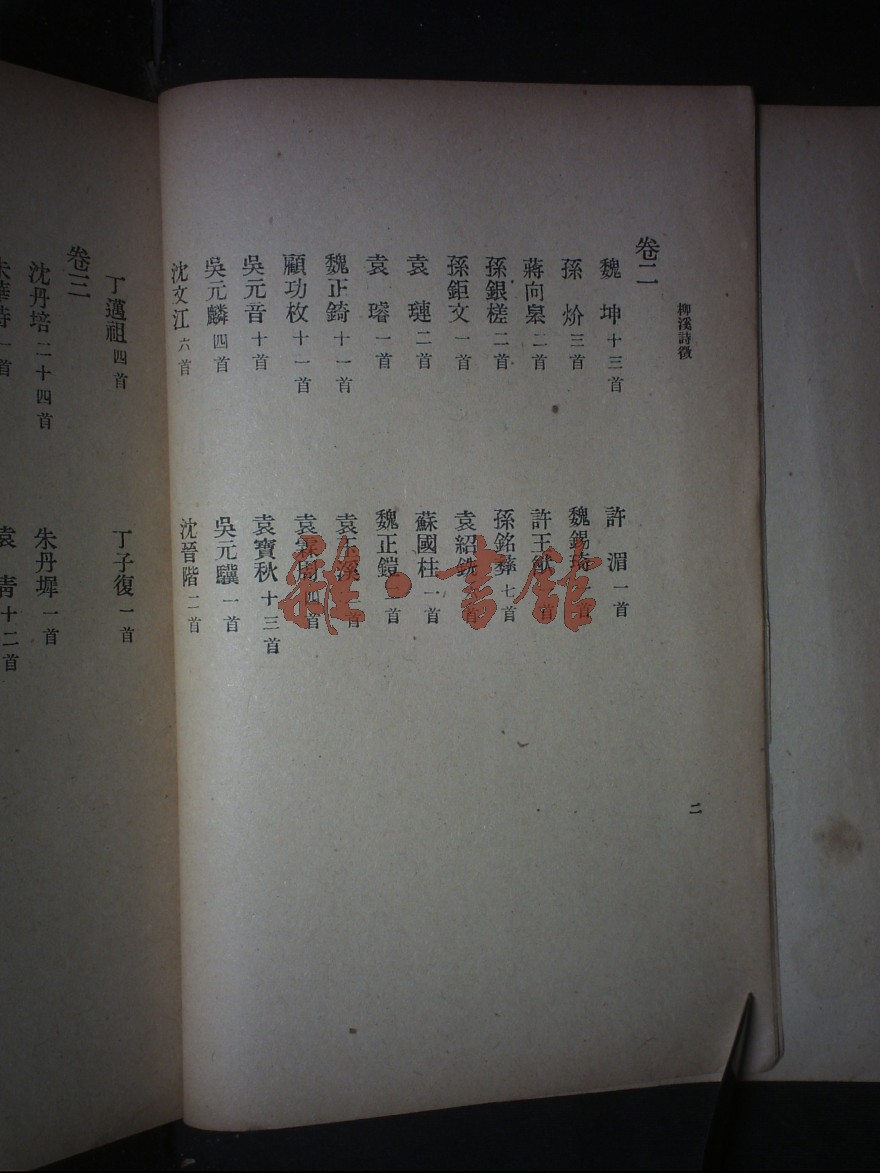 柳溪詩徵
卷二
魏 坤 十三首
許 湄 一首
孫 炌 三首
魏錫琦 首
蔣向皋 二首
許王猷 首
孫銀槎 二首
孫銘彝 七首
孫鉅文 一首
袁紹銑 首
袁 璉 二首
蘇國柱 一首
袁 璿 一首
魏正鎧 首
魏正錡 十一首
袁玉溪 首
顧功枚 十一首
袁寀周 四首
吳元音 十首
袁寶秋 十三首
吳元麟 四首
吳元驥 一首
沈文江 六首
沈晉階 二首
二
丁邁祖 四首
丁子復 一首
卷三
沈丹培 二十四首
朱丹墀 一首
一首
袁 青 十二首
雜·書館